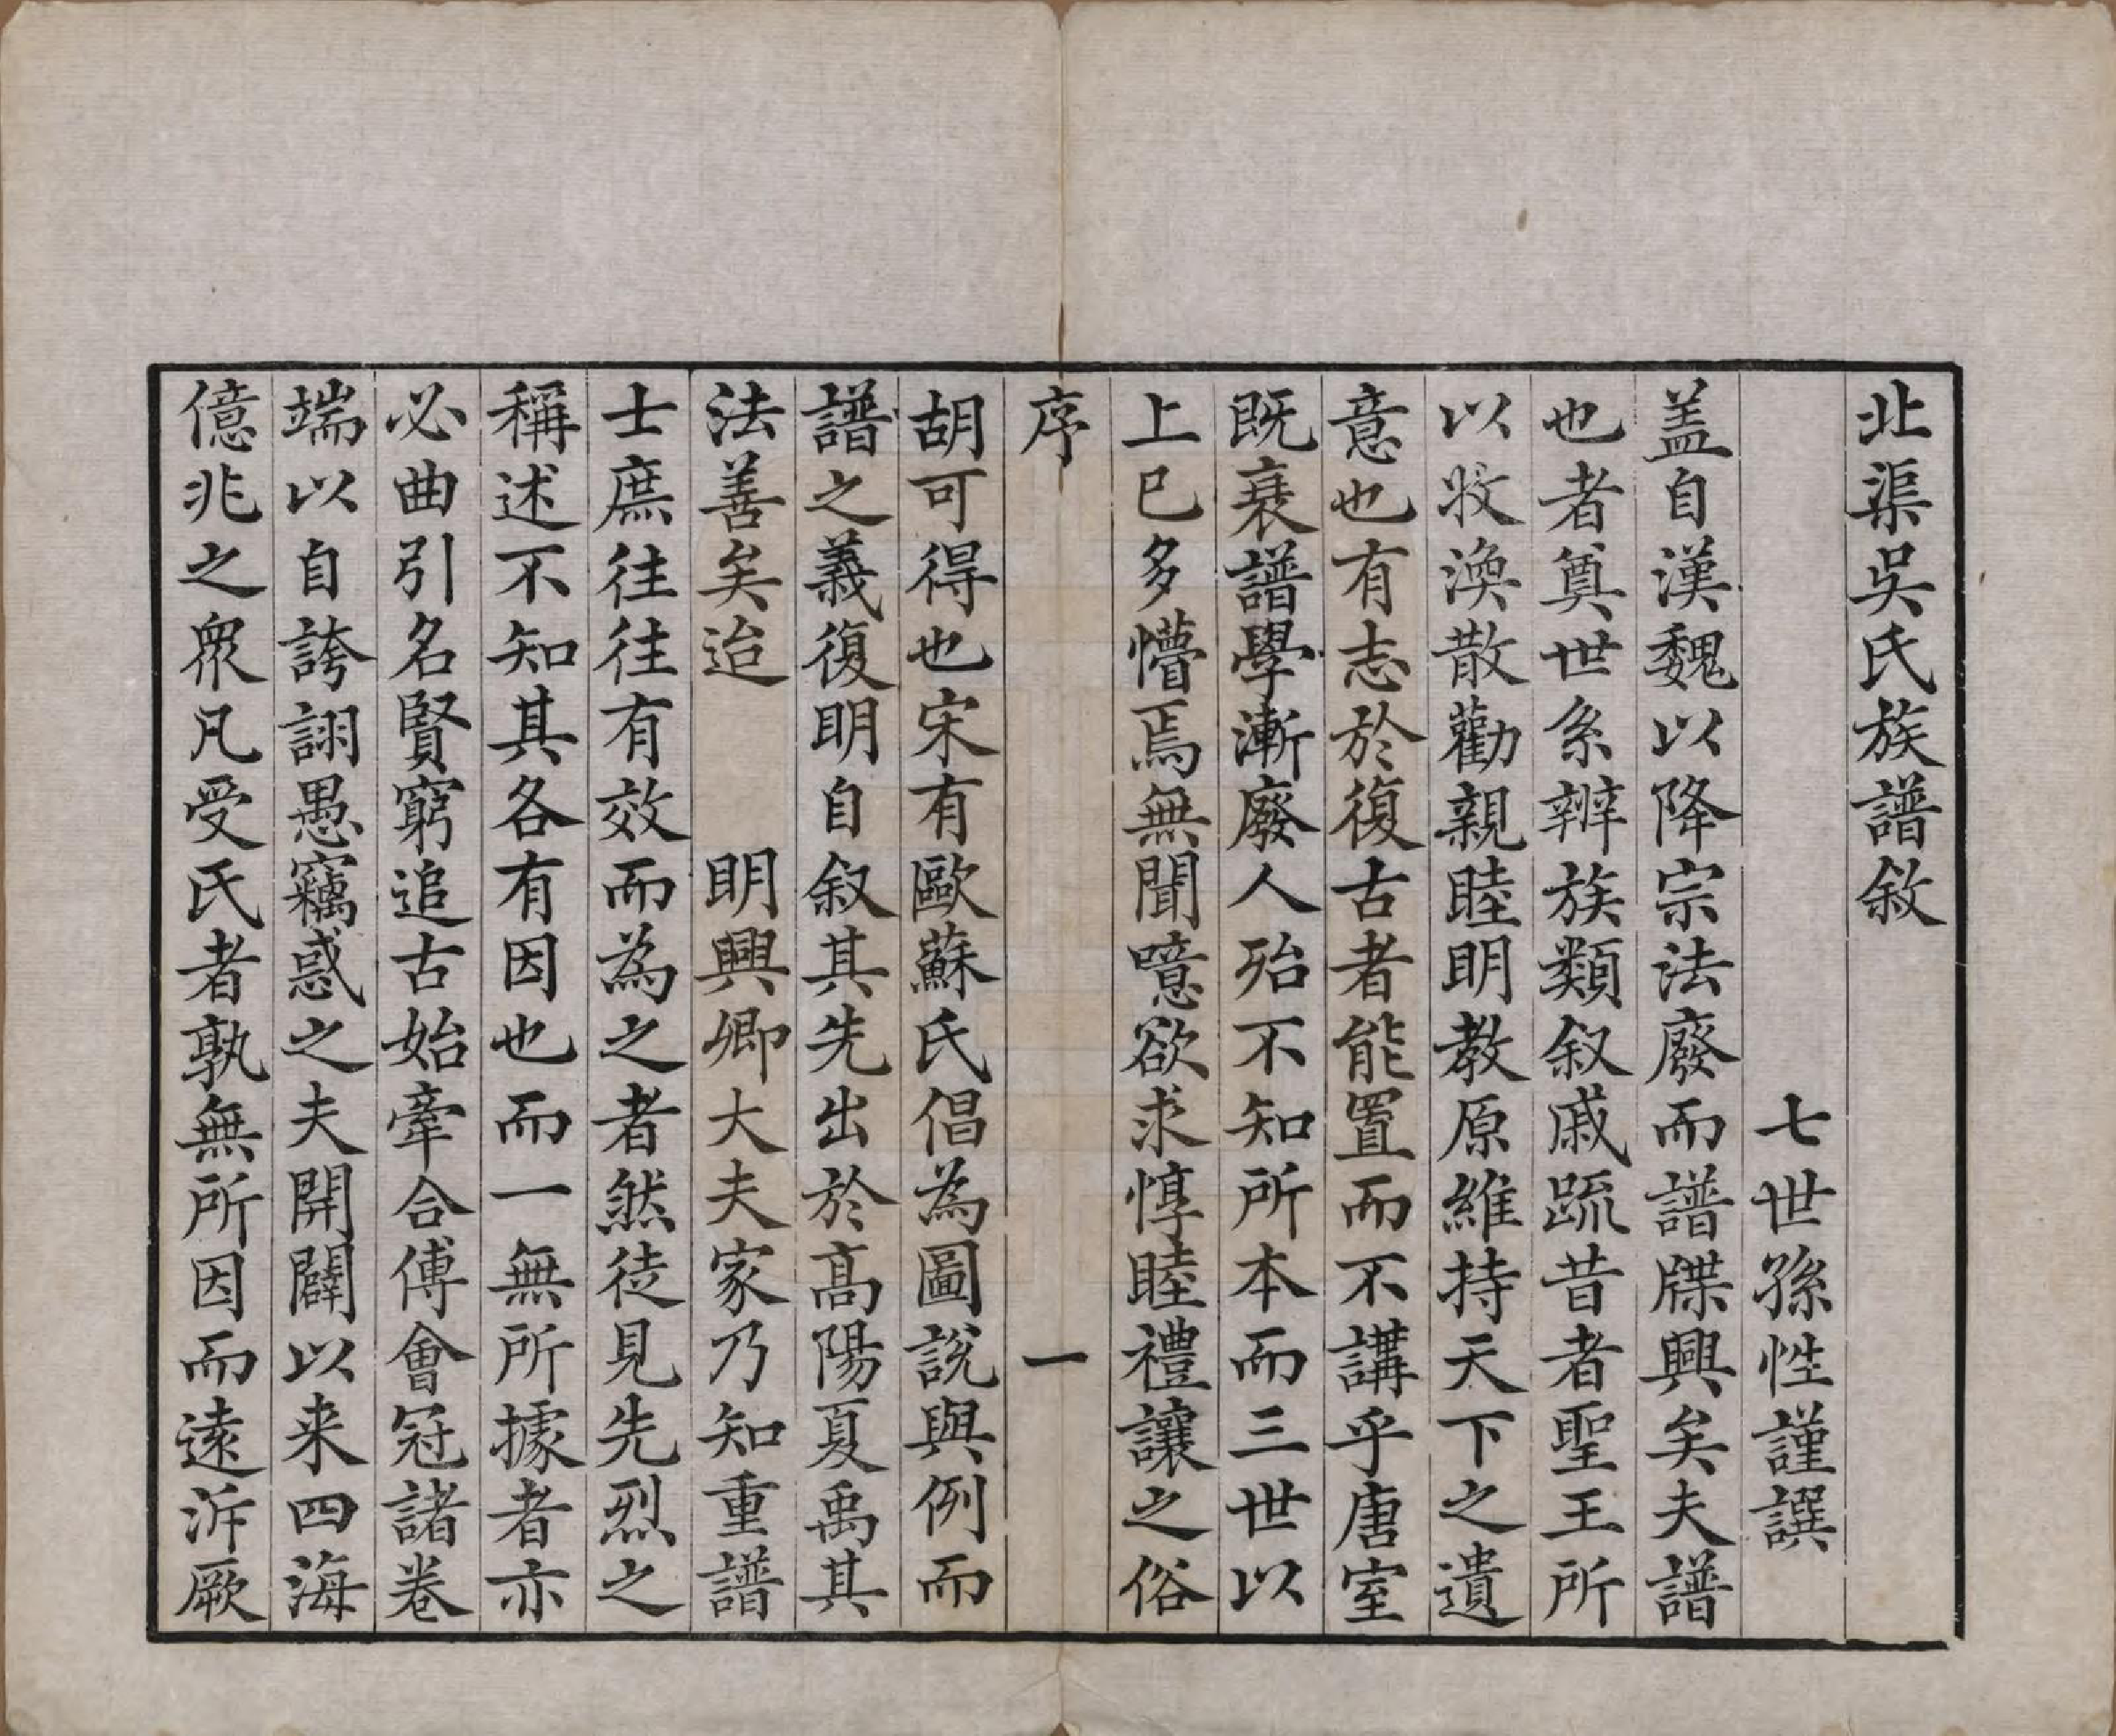 北渠吳氏族譜敘
七世孫性謹譔
盖自漢魏以降宗法廢而譜牒興矣夫譜
也者奠世系辨族類叙戚䟽昔者聖王所
以收渙散勸親睦明教原維持天下之遺
意也有志於復古者能置而不講乎唐室
既衰譜學漸廢人殆不知所本而三世以
上已多懵焉無聞噫欲求惇睦禮讓之俗
序 一
胡可得也宋有歐蘇氏倡為圖說與例而
譜之義復明自叙其先出於高陽夏禹其
法善矣迨 明興卿大夫家乃知重譜
士庶往往有效而為之者然徒見先烈之
稱述不知其各有因也而一無所據者亦
必曲引名賢窮追古始牽合傅會冠諸卷
端以自誇詡愚竊惑之夫開闢以来四海
億兆之衆凡受氏者孰無所因而遠泝厥